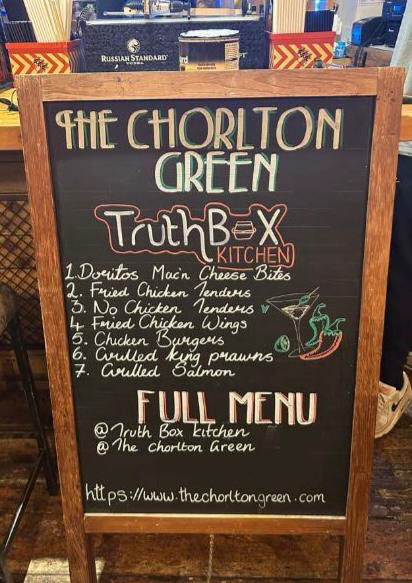 RUSSIAN STANDARD
VODKA
THE CHORLTON
GREEN
TruthBOX
KITCHEN
1. Doritos Mac'n Cheese Bites
2. Fried Chicken Tenders
3. No Chicken Tenders V
4 Fried Chicken Wings
5. Chicken Burgers
6. Grilled king prawns
7. Grilled Salmon
FULL MENU
@ Truth Box kitchen
@ The chorlton Green
https://www.thechorltongreen.com